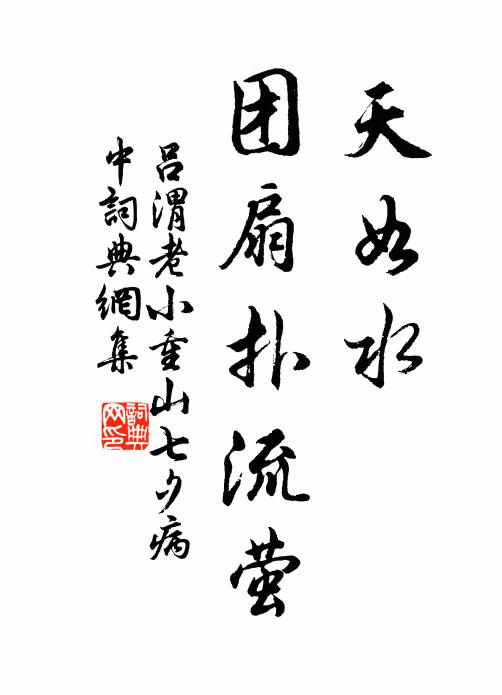 天如水
团扇扑流萤
吕渭老小重山七夕病
中詞典網集
詞典
网印